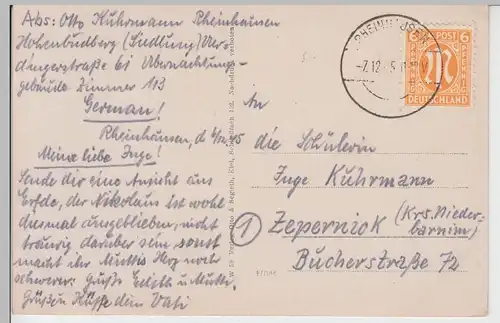 Abs: Otto Kuhrmann Rheinhausen
Hohenbudberg (Siedlung) Uer-
dingerstraße 61 Übernachtungs-
gebäude Zimmer 113
German!
Rheinhausen, d. 6/12. 45
Meine liebe Inge!
Sende dir eine Ansicht aus
der Nikolaus ist wohl
diesmal ausgeblieben, nicht
traurig darüber sein, sonst
macht ihr Muttis Herz noch
schwerer. Grüße Edith u. Mutti,
Grüßen Küsse dein Vati
RHEINHAUSEN
-7.12.45.11
6 POST 6
M
DEUTSCHLAND
An
die Schülerin
Inge Kuhrmann
1 Zepernick (Krs. Nieder-
barnim)
Bucherstraße 72